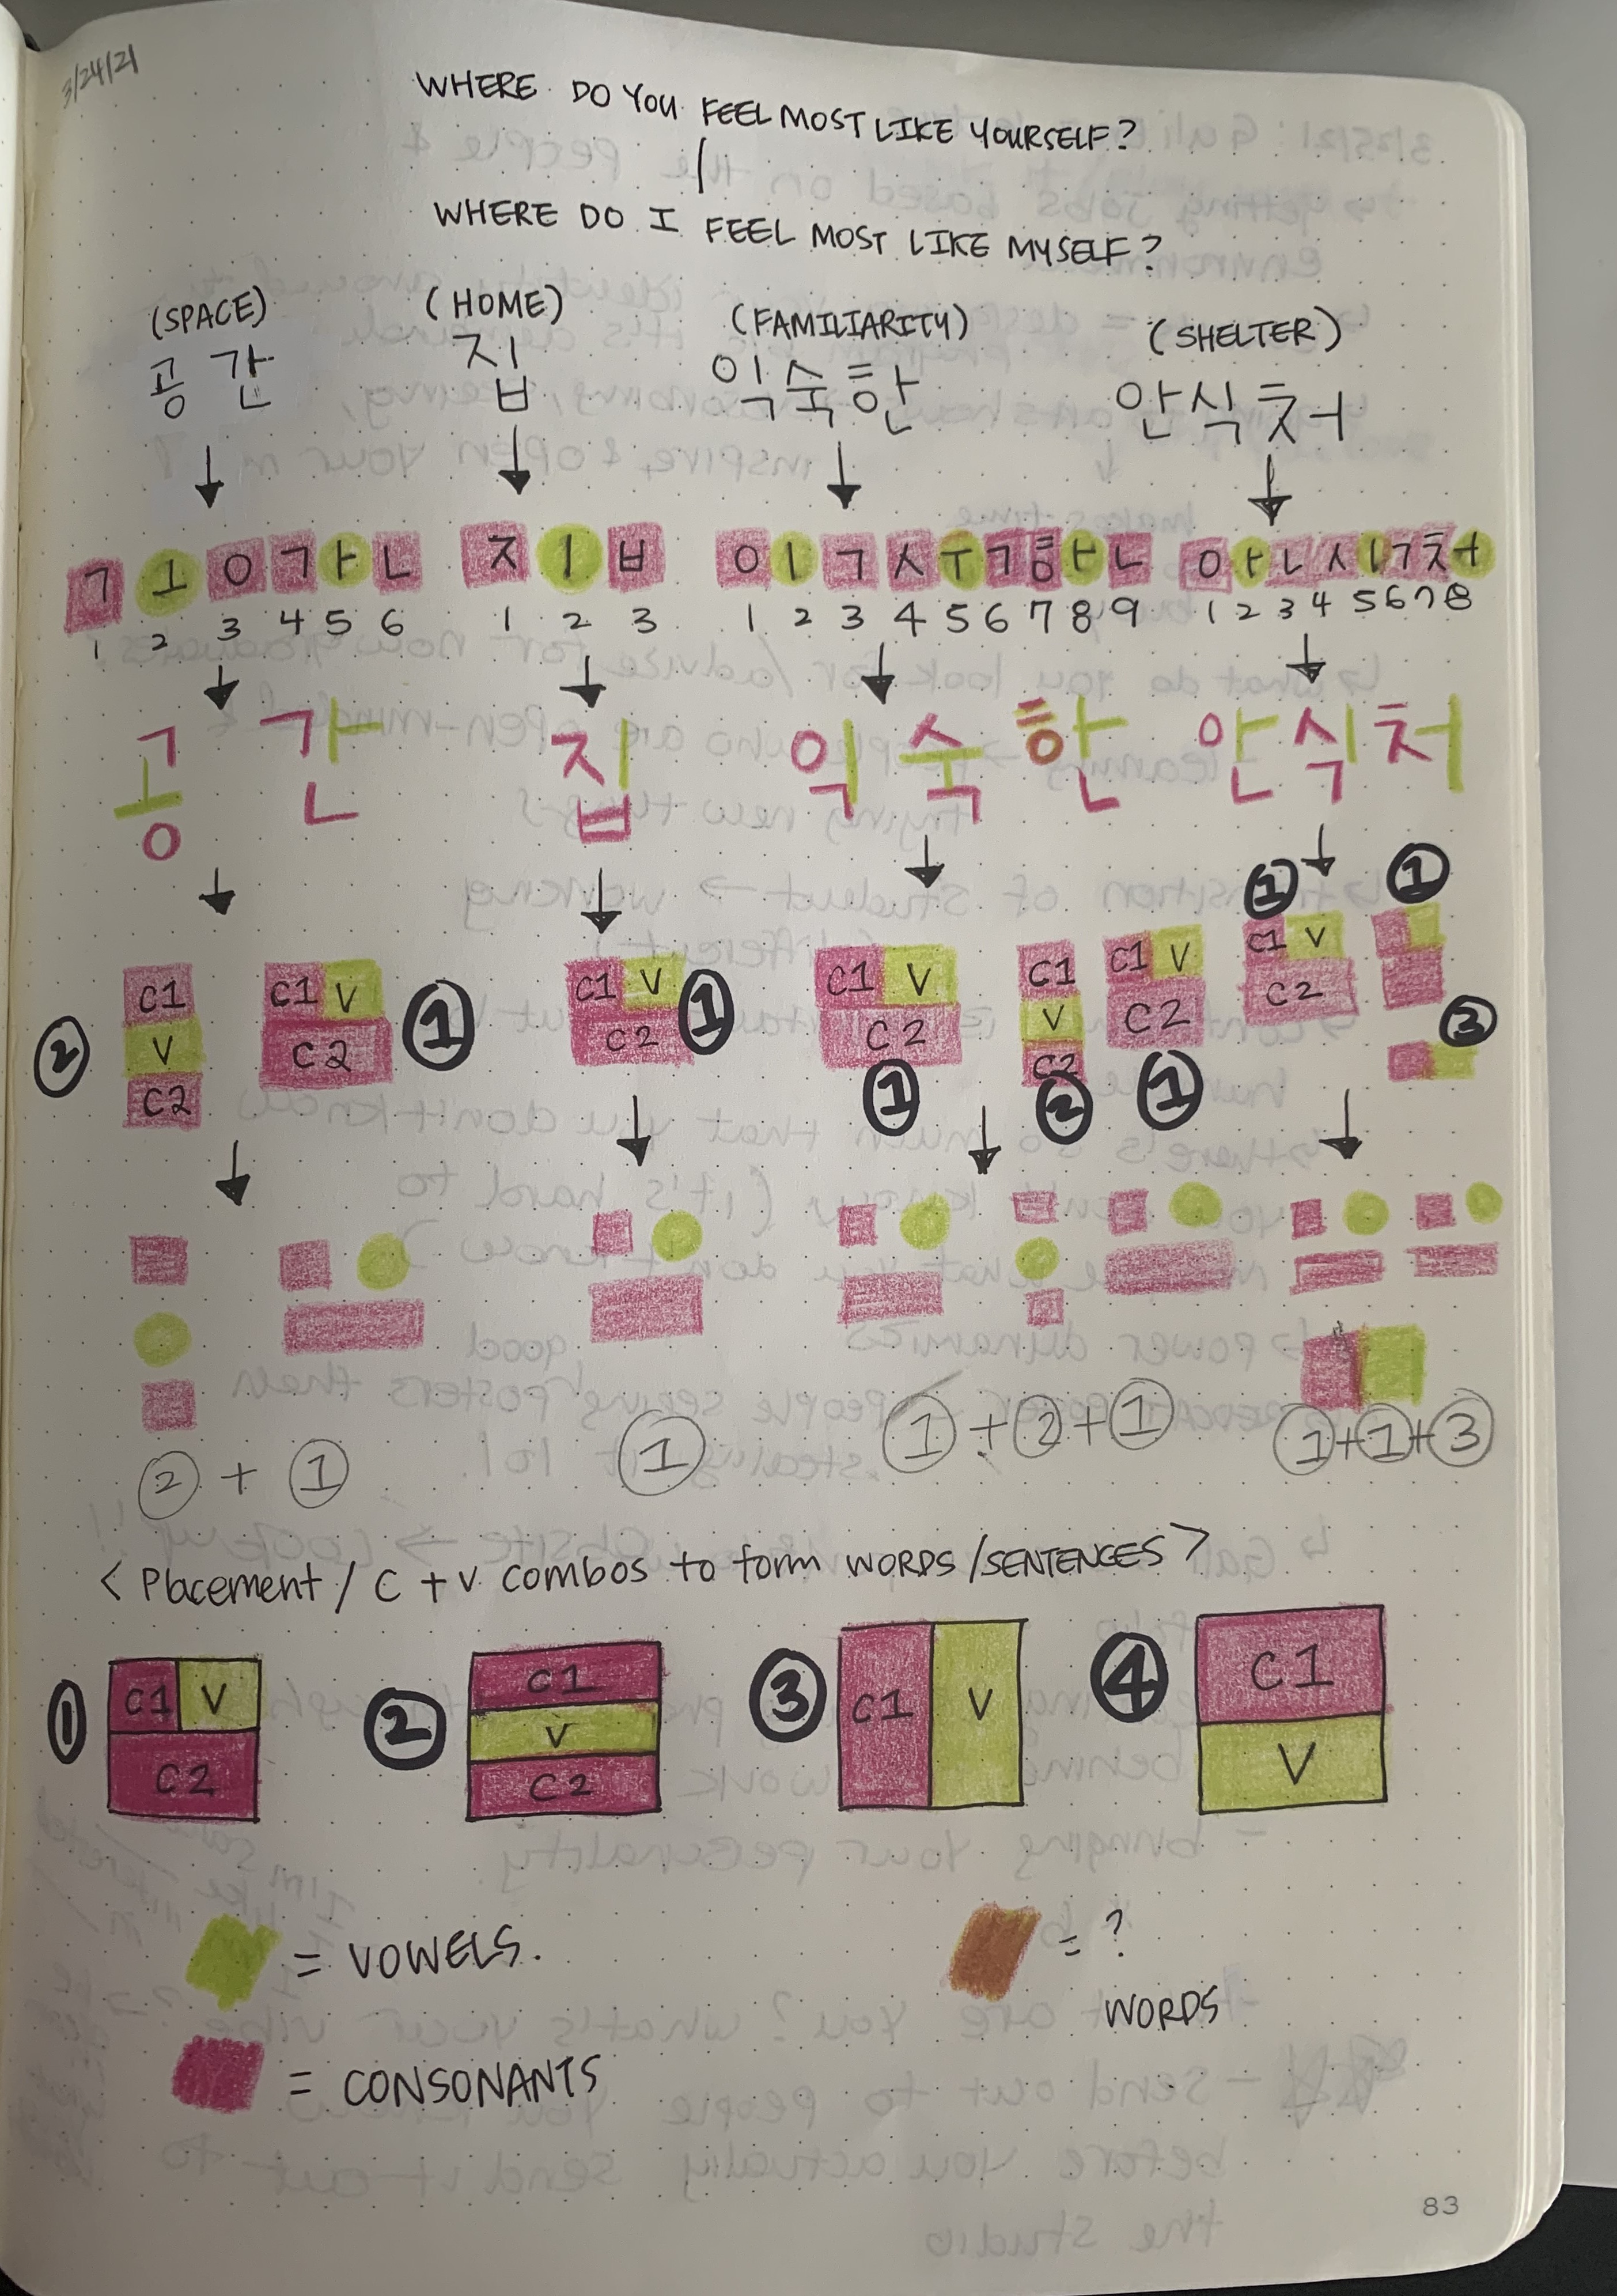 3/24/21
WHERE DO YOU FEEL MOST LIKE YOURSELF?
WHERE DO I FEEL MOST LIKE MYSELF?
(SPACE) (HOME) (FAMILIARITY) (SHELTER)
공간 집 익숙한 안식처
ㄱ ㅗ ㅇ ㄱ ㅏ ㄴ ㅈ ㅣ ㅂ ㅇ ㅣ ㄱ ㅅ ㅜ ㄱ ㅎ ㅏ ㄴ ㅇ ㅏ ㄴ ㅅ ㅣ ㄱ ㅊ ㅓ
1 2 3 4 5 6 1 2 3 1 2 3 4 5 6 7 8 9 1 2 3 4 5 6 7 8
공 간 집 익 숙 한 안 식 처
1 1
C1 C1 V C1 V C1 V C1 C1 V C1 V
2 V C2 1 C2 1 C2 V C2 C2 3
C2 1 C2 2 1
2 + 1 1 1 + 2 + 1 1+1+3
< Placement / C + V combos to form WORDS/SENTENCES >
1 C1 V 2 C1 3 C1 V 4 C1
V V
C2 C2
= VOWELS. = ?
WORDS
= CONSONANTS
83